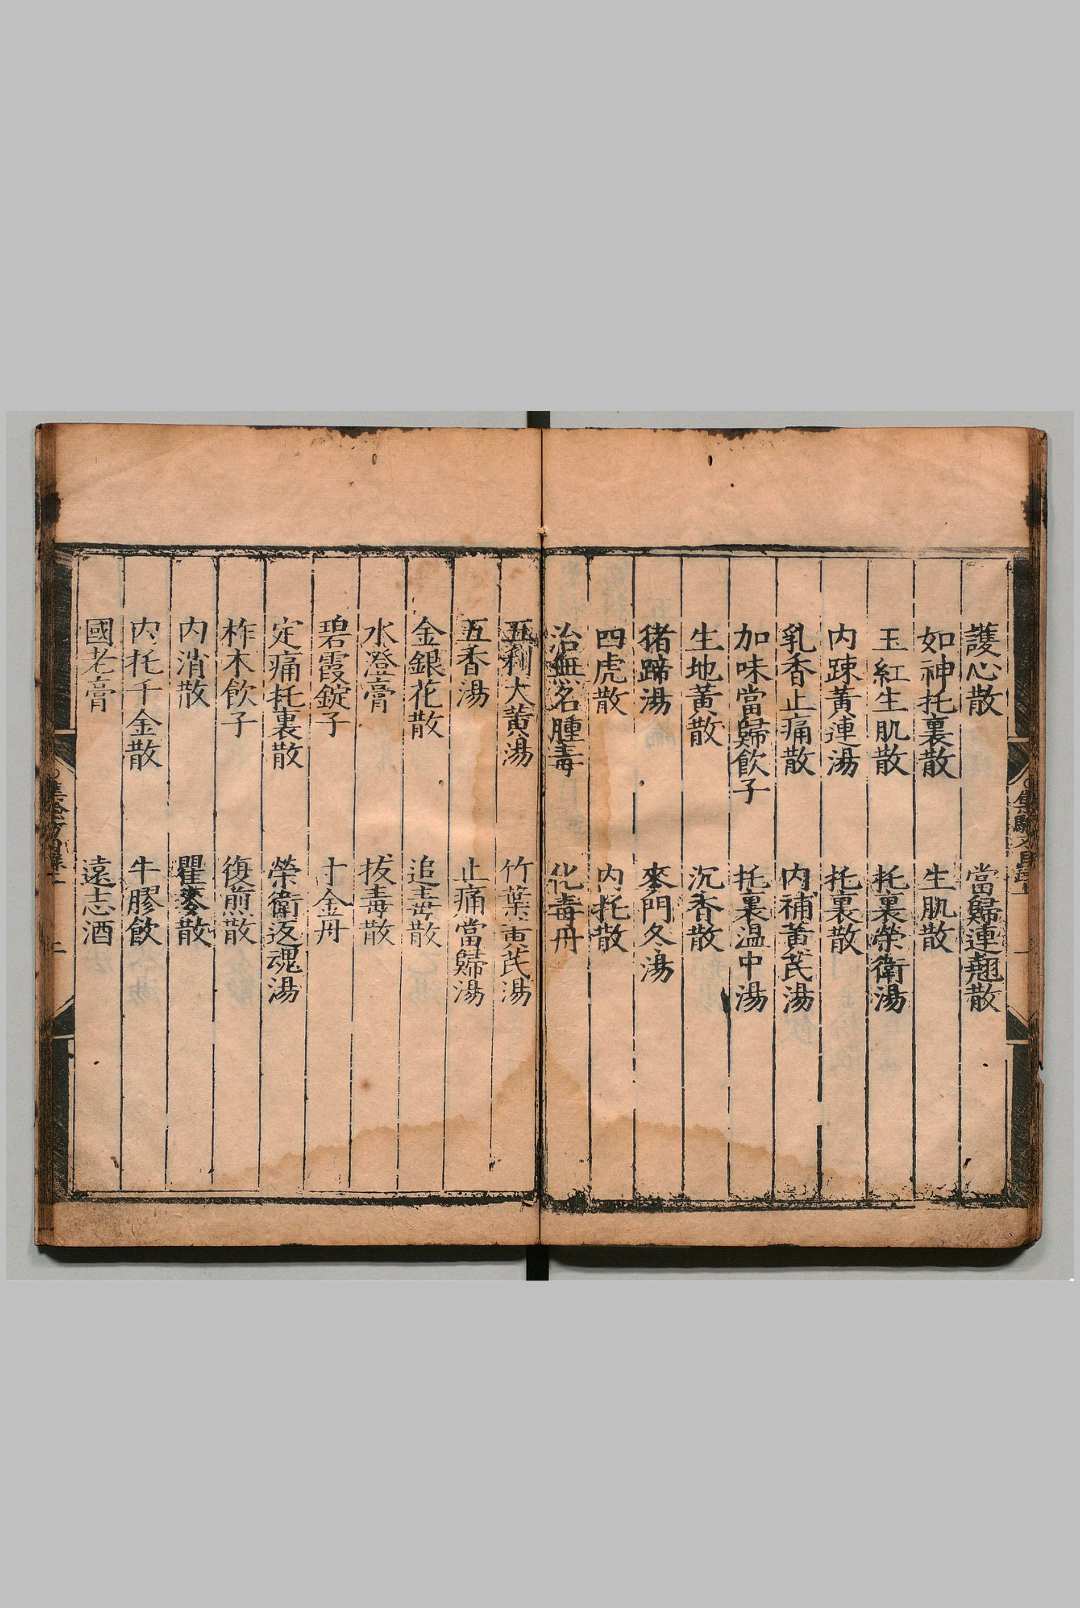 護心散　當歸連翹散
如神托裏散　生肌散
玉紅生肌散　托裏榮衛湯
内踈黃連湯　托裏散
乳香止痛散　内補黃芪湯
加味當歸飲子　托裏温中湯
生地黃散　沉香散
猪蹄湯　麥門冬湯
四虎散　内托散
治無名腫毒　化毒丹
五利大黃湯　竹葉黃芪湯
五香湯　止痛當歸湯
金銀花散　追毒散
水澄膏　拔毒散
碧霞錠子　十金丹
定痛托裏散　榮衛返魂湯
柞木飲子　復煎散
内消散　瞿麥散
内托千金散　牛膠飲
國老膏　遠志酒